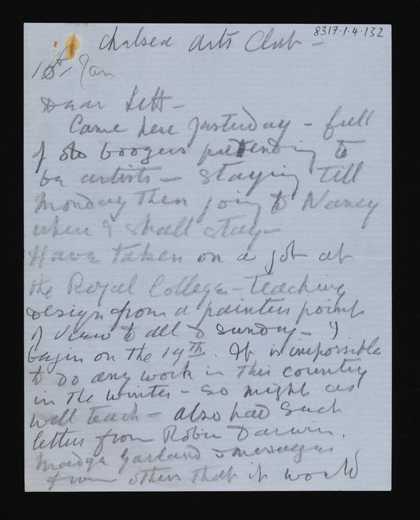 8317.1.4.132
Chelsea Arts Club -
10th Jan
Dear Lett -
Came here yesterday - full
of old boogers pretending to
be artists - staying till
Monday then going to Nancy
where I shall stay -
Have taken on a job at
the Royal College - teaching
design from a painters point
of view to all & sunday - I
begin on the 19th. It is impossible
to do any work in this country
in the winter - so might as
well teach - also had such
letters from Robin Darwin,
Madge Garland & messages
from others that it would